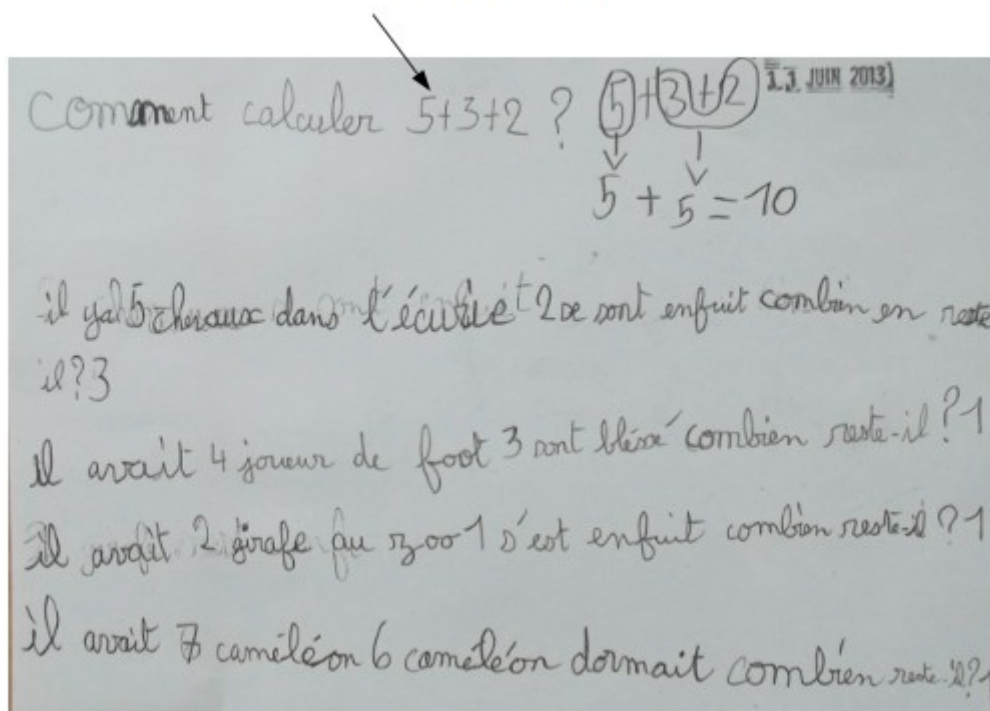 Comment calculer 5+3+2 ? 5+3+2 13 JUIN 2013
5 + 5 = 10
il ya 5 chevaux dans l'écurie 2 se sont enfuit combien en reste
il ? 3
il avait 4 joueur de foot 3 sont bléssé combien reste-il ? 1
il avait 2 girafe au zoo 1 s'est enfuit combien reste-il ? 1
il avait 7 caméléon 6 caméléon dormait combien reste-il ? 1